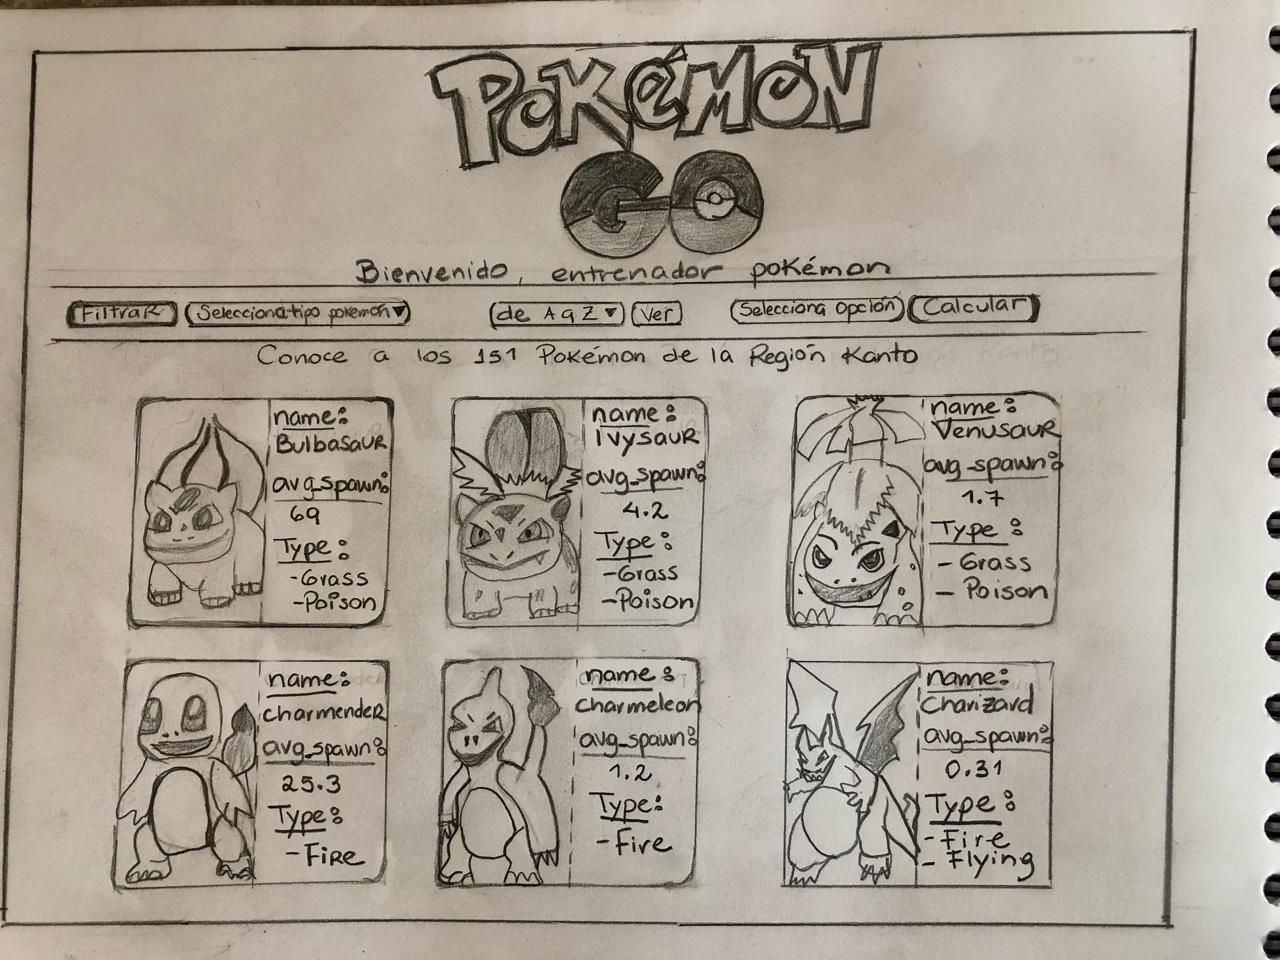 POKéMON
GO
Bienvenido, entrenador pokémon
FiltraR
Selecciona tipo pokemon▼
de A a Z ▼
Ver
Selecciona Opción
Calcular
Conoce a los 151 Pokémon de la Región Kanto
name:
BulbasauR
avg_spawn:
69
Type:
-Grass
-Poison
name:
IvysauR
avg_spawn:
4.2
Type:
-Grass
-Poison
name:
VenusauR
avg_spawn:
1.7
Type:
- Grass
- Poison
name:
charmendeR
avg_spawn:
25.3
Type:
- FiRe
name:
Charmeleon
avg_spawn:
1.2
Type:
-Fire
name:
Charizard
avg_spawn:
0.31
Type:
- Fire
- Flying